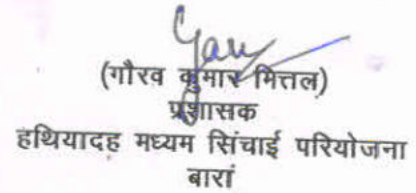 (गौरव कुमार मित्तल)
प्रशासक
हथियादह मध्यम सिंचाई परियोजना
बारां